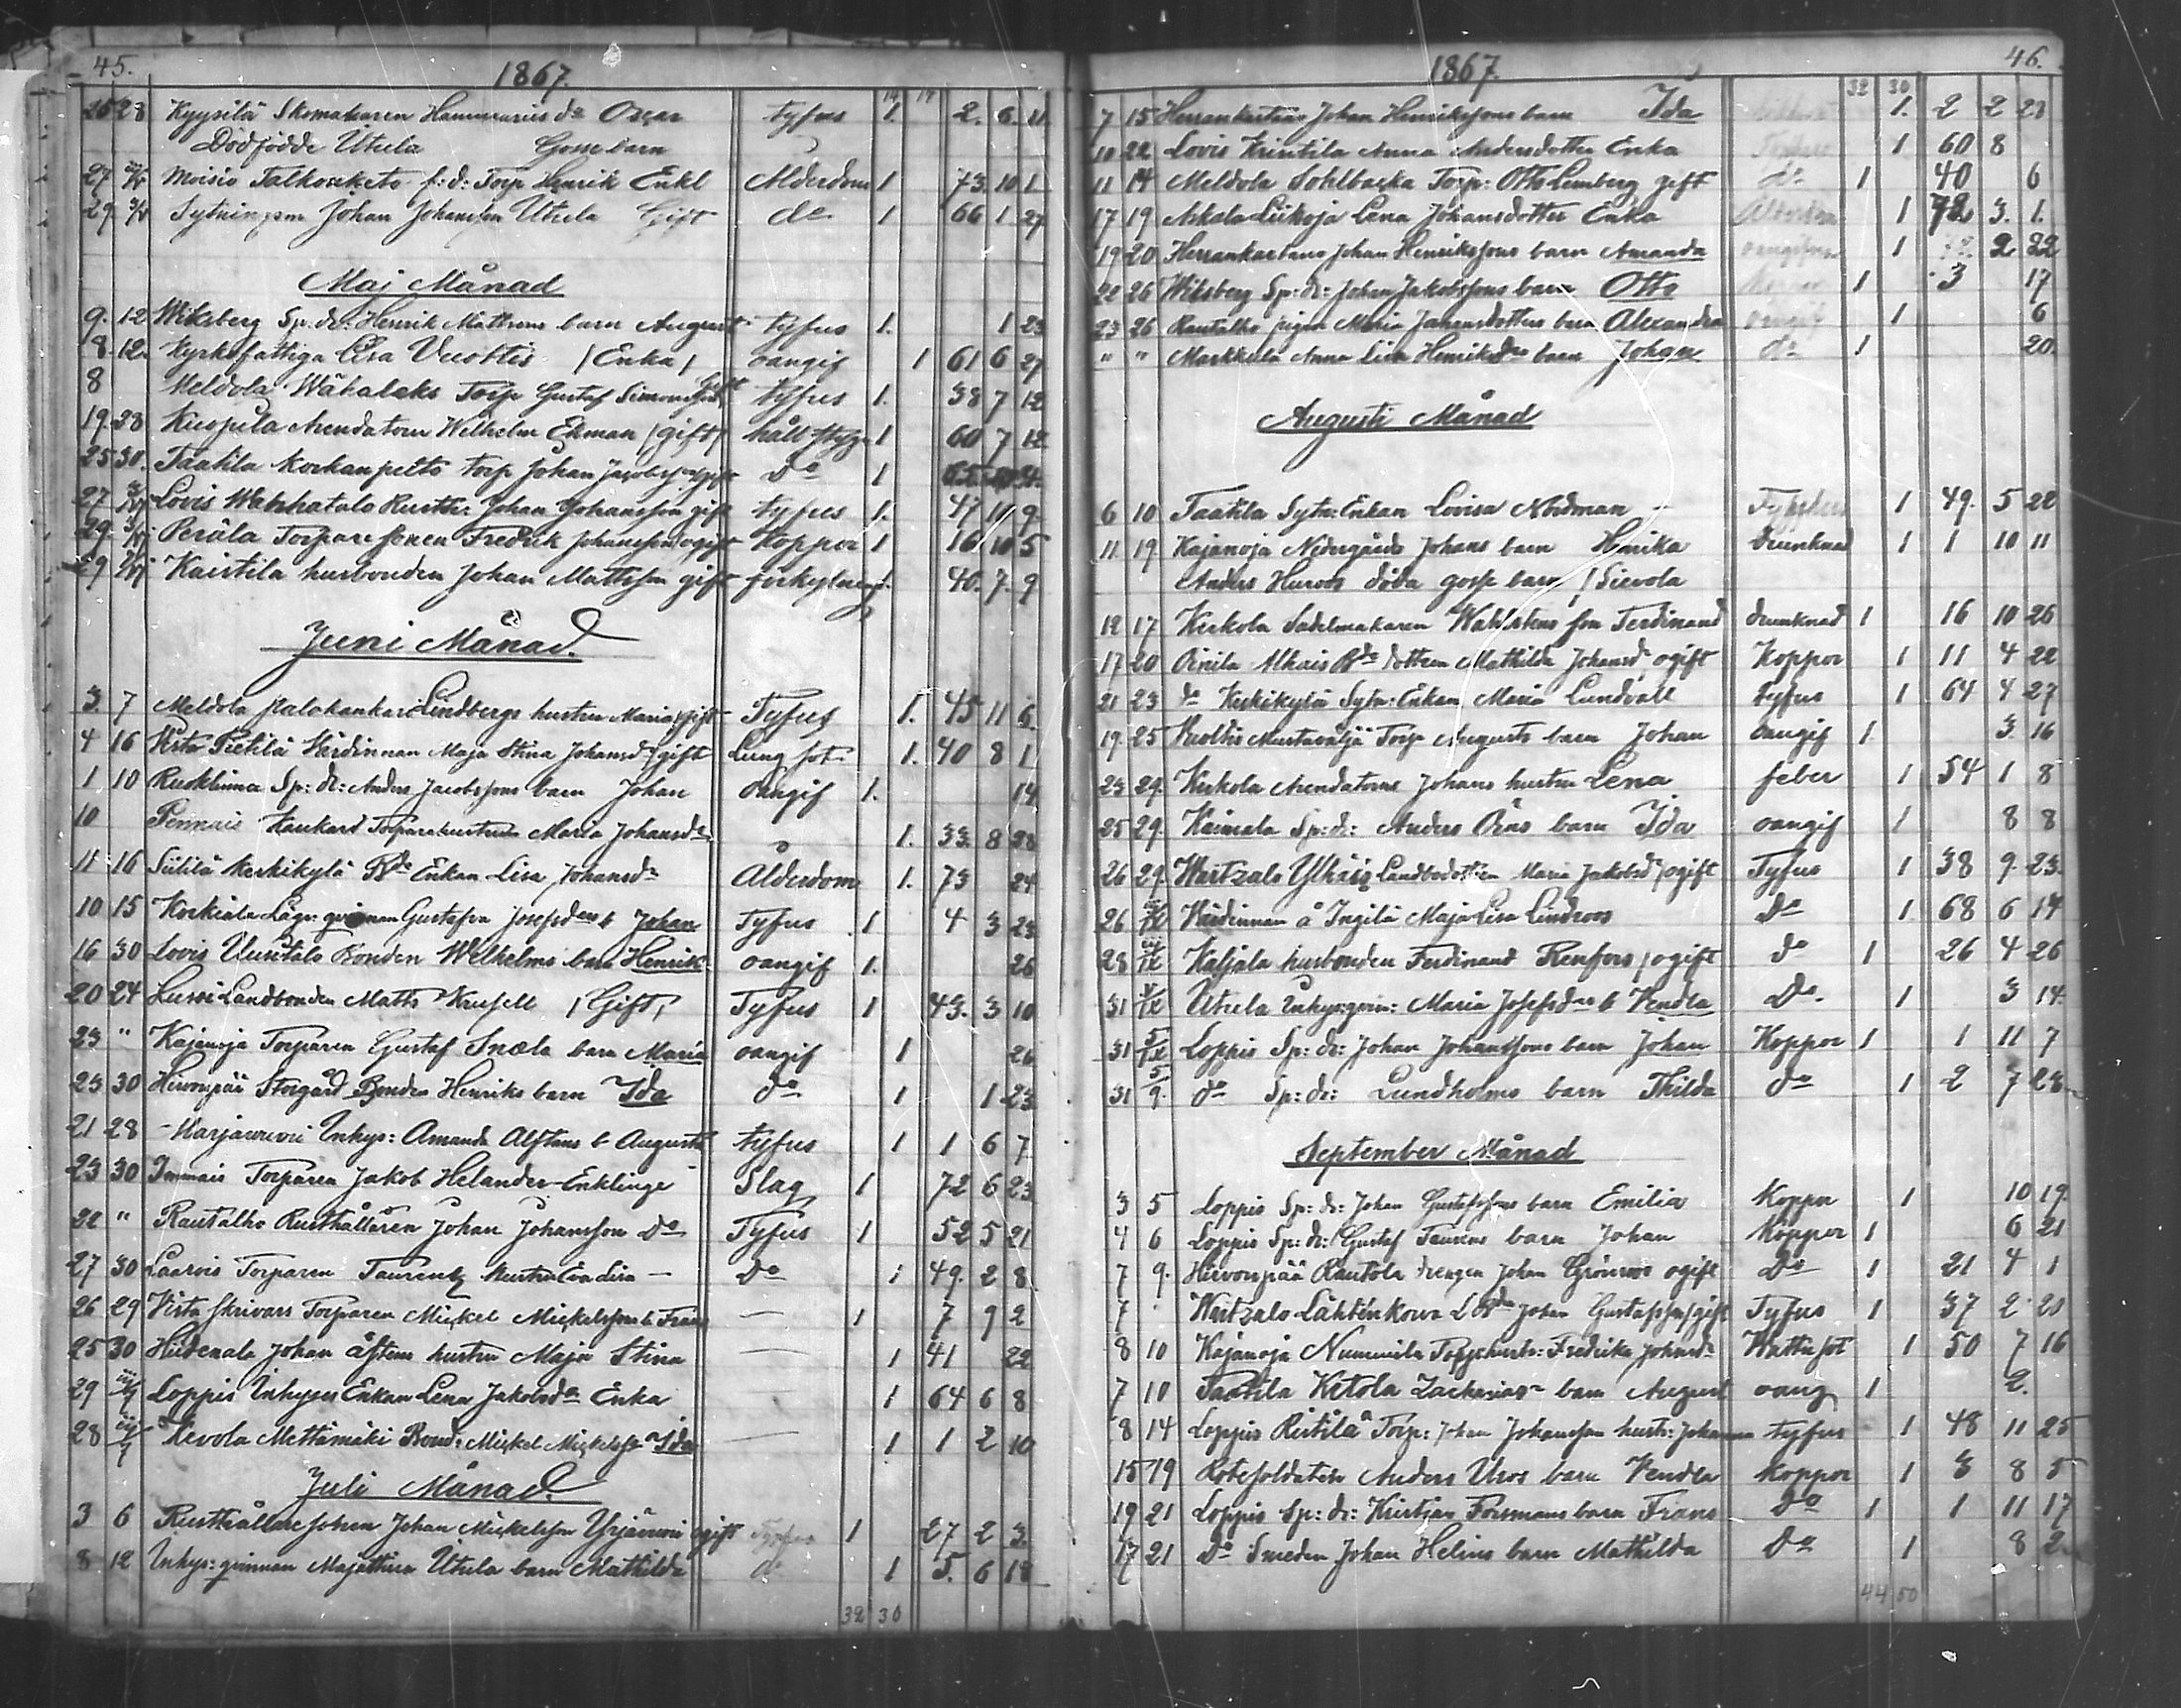 45.
1867.
14 14
25 28 Kyysilä Skomakaren Hammarins d:o Oscar tyfus 1. 2. 6. 11
Dödfödde Utula Gosse barn
27 Moisio Talkonketo f:d: Torp Henrik Enkl Ålderdom 1 73. 10 1
29 Sytningsm Johan Johansson Utula Gift do 1 66 1 27
Maj Månad
9. 12 Wiksberg Sp: dr: Henrik Mattsons barn August tyfus 1. 1 23
8 12. Kyrkofattiga Lisa Vuoltis /Enka/ oangif 1 61 6 27
8 Meldola Wähälaks Torp Gustaf Simonsson Gift tyfus 1. 38 7 12
19. 23 Kuopula Arendatorn Wilhelm Ekman /gift/ håll styg 1 60 7 12
25 30. Taatila Korkanpelto torp Johan Jacobsson gift Do 1
27 Lovis Wahhatalo Rusth: Johan Johansson gift tyfus 1. 47 11 9
29. Peräla Torpare sonen Fredrik Johansson ogift Koppor 1 16 10 5
29 Kaistila husbonden Johan Mattsson gift förkylning 1. 40. 7. 9
Juni Månad.
3 7 Meldola Lindbergs hustru Maria gift Tyfus 1. 45 11 6.
4 16 Wista Pietilä Wärdinnan Maja Stina Johansd /gift Lungsot 1. 40 8 1
1 10 Sp: dr: Anders Jacobssons barn Johan Oangif 1. 14
10 Pennais Kankard Torparehustrun Maria Johansdr 1. 33. 8 28
11 16 Siitilä Keskikylä Bde Enkan Lisa Johansdr Ålderdom 1. 73 24
10 15 Korkiala Lägr: qvinnan Gustafva Josefsdrs b Johan Tyfus 1 4 3 23
16 30 Lovis Uusitalo Bonden Wilhelms barn Henrik oangif 1. 26
20 24 Lussi Landbonden Matts Krusell /Gift/ Tyfus 1 43. 3 10
23 " Kajanoja Torparen Gustaf Snæla barn Maria oangif 1 26
23 30 Hirvonpää Storgård Bonden Henriks barn Ida do 1 1 23
21 28 Harjawuori Inhys: Amanda Alstens b Augusta tyfus 1 1 6 7
23 30 Immais Torparen Jakob Helander Enklinge Slag 1 72 6 23
22 " Rautalho Rusthållaren Johan Johansson Do Tyfus 1 52 5 21
27 30 Laarois Torparen Taurentz hustru Eva Lisa — Do 1 49. 2 8
26 29 Wista Skrivars Torparen Mickel Mickelssons b Frans — 1 7 9 2
25 30 Hiidenala Johan Åstens hustru Maja Stina — 1 41 22
29 Loppis Inhyses Enkan Lena Jakobsdr Enka 1 64 6 8
28 Kevola Mettämäki Bond: Mickel Mickelss Ida — 1 1 2 10
Juli Månad.
3 6 Rusthållare sonen Johan Mickelsson Yrjänvuori ogift Tyfus 1 27 2 3
8 12 Inhys: qvinnan Majastina Utula barn Mathilda do 1 5. 6 18
32 30
1867. 46.
32 30
7 15 Herrankartano Johan Henrikssons barn Ida 1. 2 2 28
10 22 Lovis Kristila Anna Andersdotter Enka 1 60 8
11 14 Meldola Sohlbacka Torp: Otto Lemberg gift do 1 40 6
17 19 Askala Liikoja Lena Johansdotter Enka Ålderdom 1 78 3. 1.
19 20 Herrankartano Johan Henrikssons barn Amanda oangifven 1 2 22
22 26 Wiksberg Sp: dr: Johan Jakobssons barn Otto 1 3 17
23 26 Rautalho pigan Maria Johansdotters barn Alexandra oangif 1 6
" " Markkula Anna Lisa Henriksdrs barn Johan do 1 20
Augusti Månad
6 10 Taatila Sytn: Enkan Lovisa Nordman Typhus 1 49. 5 22
11. 19. Kajanoja Nedergårds Johans barn Henrika Drunknad 1 1 10 11
Anders Huroos döda gosse barn /Sievola
12 17 Keskola Sadelmakaren Wahlstens son Ferdinand drunknad 1 16 10 26
17 20 Oinila Alhais Bde dottren Mathilda Johansd ogift Koppor 1 11 4 22
21 23 do Keskikylä Sytn: Enkan Maria Lundvall tyfus 1 64 4 27
19. 25 Vuoltis Mustaväljä Torp Augusts barn Johan oangif 1 3 16
23 29. Keskola Arendatorns Johans hustru Lena feber 1 54 1 8
25 29. Kaimala Sp: dr: Anders Öras barn Ida oangif 1 8 8
26 29. Wartzalo Ylhäis Landbodottren Maria Jakobsd /ogift Tyfus 1 38 9. 23.
26 Wärdinnan å Ingilä Maja Lisa Lindroos Do 1 68 6 14
28 Kaljala husbonden Ferdinand Renfors /ogift do 1 26 4 26
31 Utula Inhys:qvin: Maria Josefsdrs b Wendla Do. 1 3 14.
31 5/IX Loppis Sp: dr: Johan Johanssons barn Johan Koppor 1 1 11 7
31 5/9. do Sp: dr: Lundholms barn Thilda do 1 2 7 28
September Månad
3 5 Loppis Sp: dr: Johan Gustafssons barn Emilia Koppor 1 10 19.
4 6 Loppis Sp: dr: Gustaf Taurens barn Johan Koppor 1 6 21
7 9. Hirvonpää Rautola drengen Johan Grönroos ogift Do 1 21 4 1
7 Wartzalo Lähténkorva Lbde Johan Gustafsson /gift Tyfus 1 37 2 21
8 10 Kajanoja Nummila Torparhustr: Fredrika Johansdr Wattusot 1 50 7 16
7 10 Taatila Ketola Zacharias barn August oang 1 2.
8 14 Loppis Ristilä Torp: Johan Johansson hustr: Johanna tyfus 1 48 11 25
15 19 Rotesoldaten Anders Uros barn Wendla Koppor 1 3 8 5
19 21 Loppis Sp: dr: Kristian Forsmans barn Frans Do 1 1 11 17
17 21 Do Smeden Johan Helins barn Mathilda Do 1 8 2
44 50